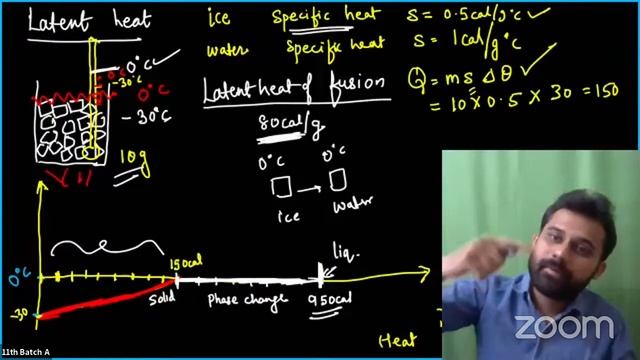 Latent heat
ice specific heat S = 0.5 cal/g°C ✓
water specific heat S = 1 cal/g°C
0°C ✓
0°C
-30°C
0°C
-30°C
10g
Q = m s Δθ
= 10 × 0.5 × 30 = 150
Latent heat of fusion
80 cal/g
0°C 0°C
ice → water
0°C
-30
150cal
Solid
phase change
950cal
liq.
Heat
zoom
11th Batch A